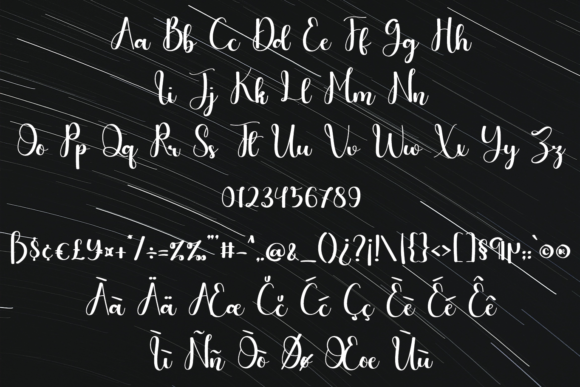 Aa Bb Cc Dd Ee Ff Gg Hh
Ii Jj Kk Ll Mm Nn
Oo Pp Qq Rr Ss Tt Uu Vv Ww Xx Yy Zz
0123456789
ß$¢€£¥¤+*/÷=%‰"'#-^..@&_()¿?¡!\|{}<>[]§¶µ:;`©®
Àà Ää Ææ Čč Ćć Çç Èè Éé Êê
Ìì Ññ Òò Øø Œœ Ùù